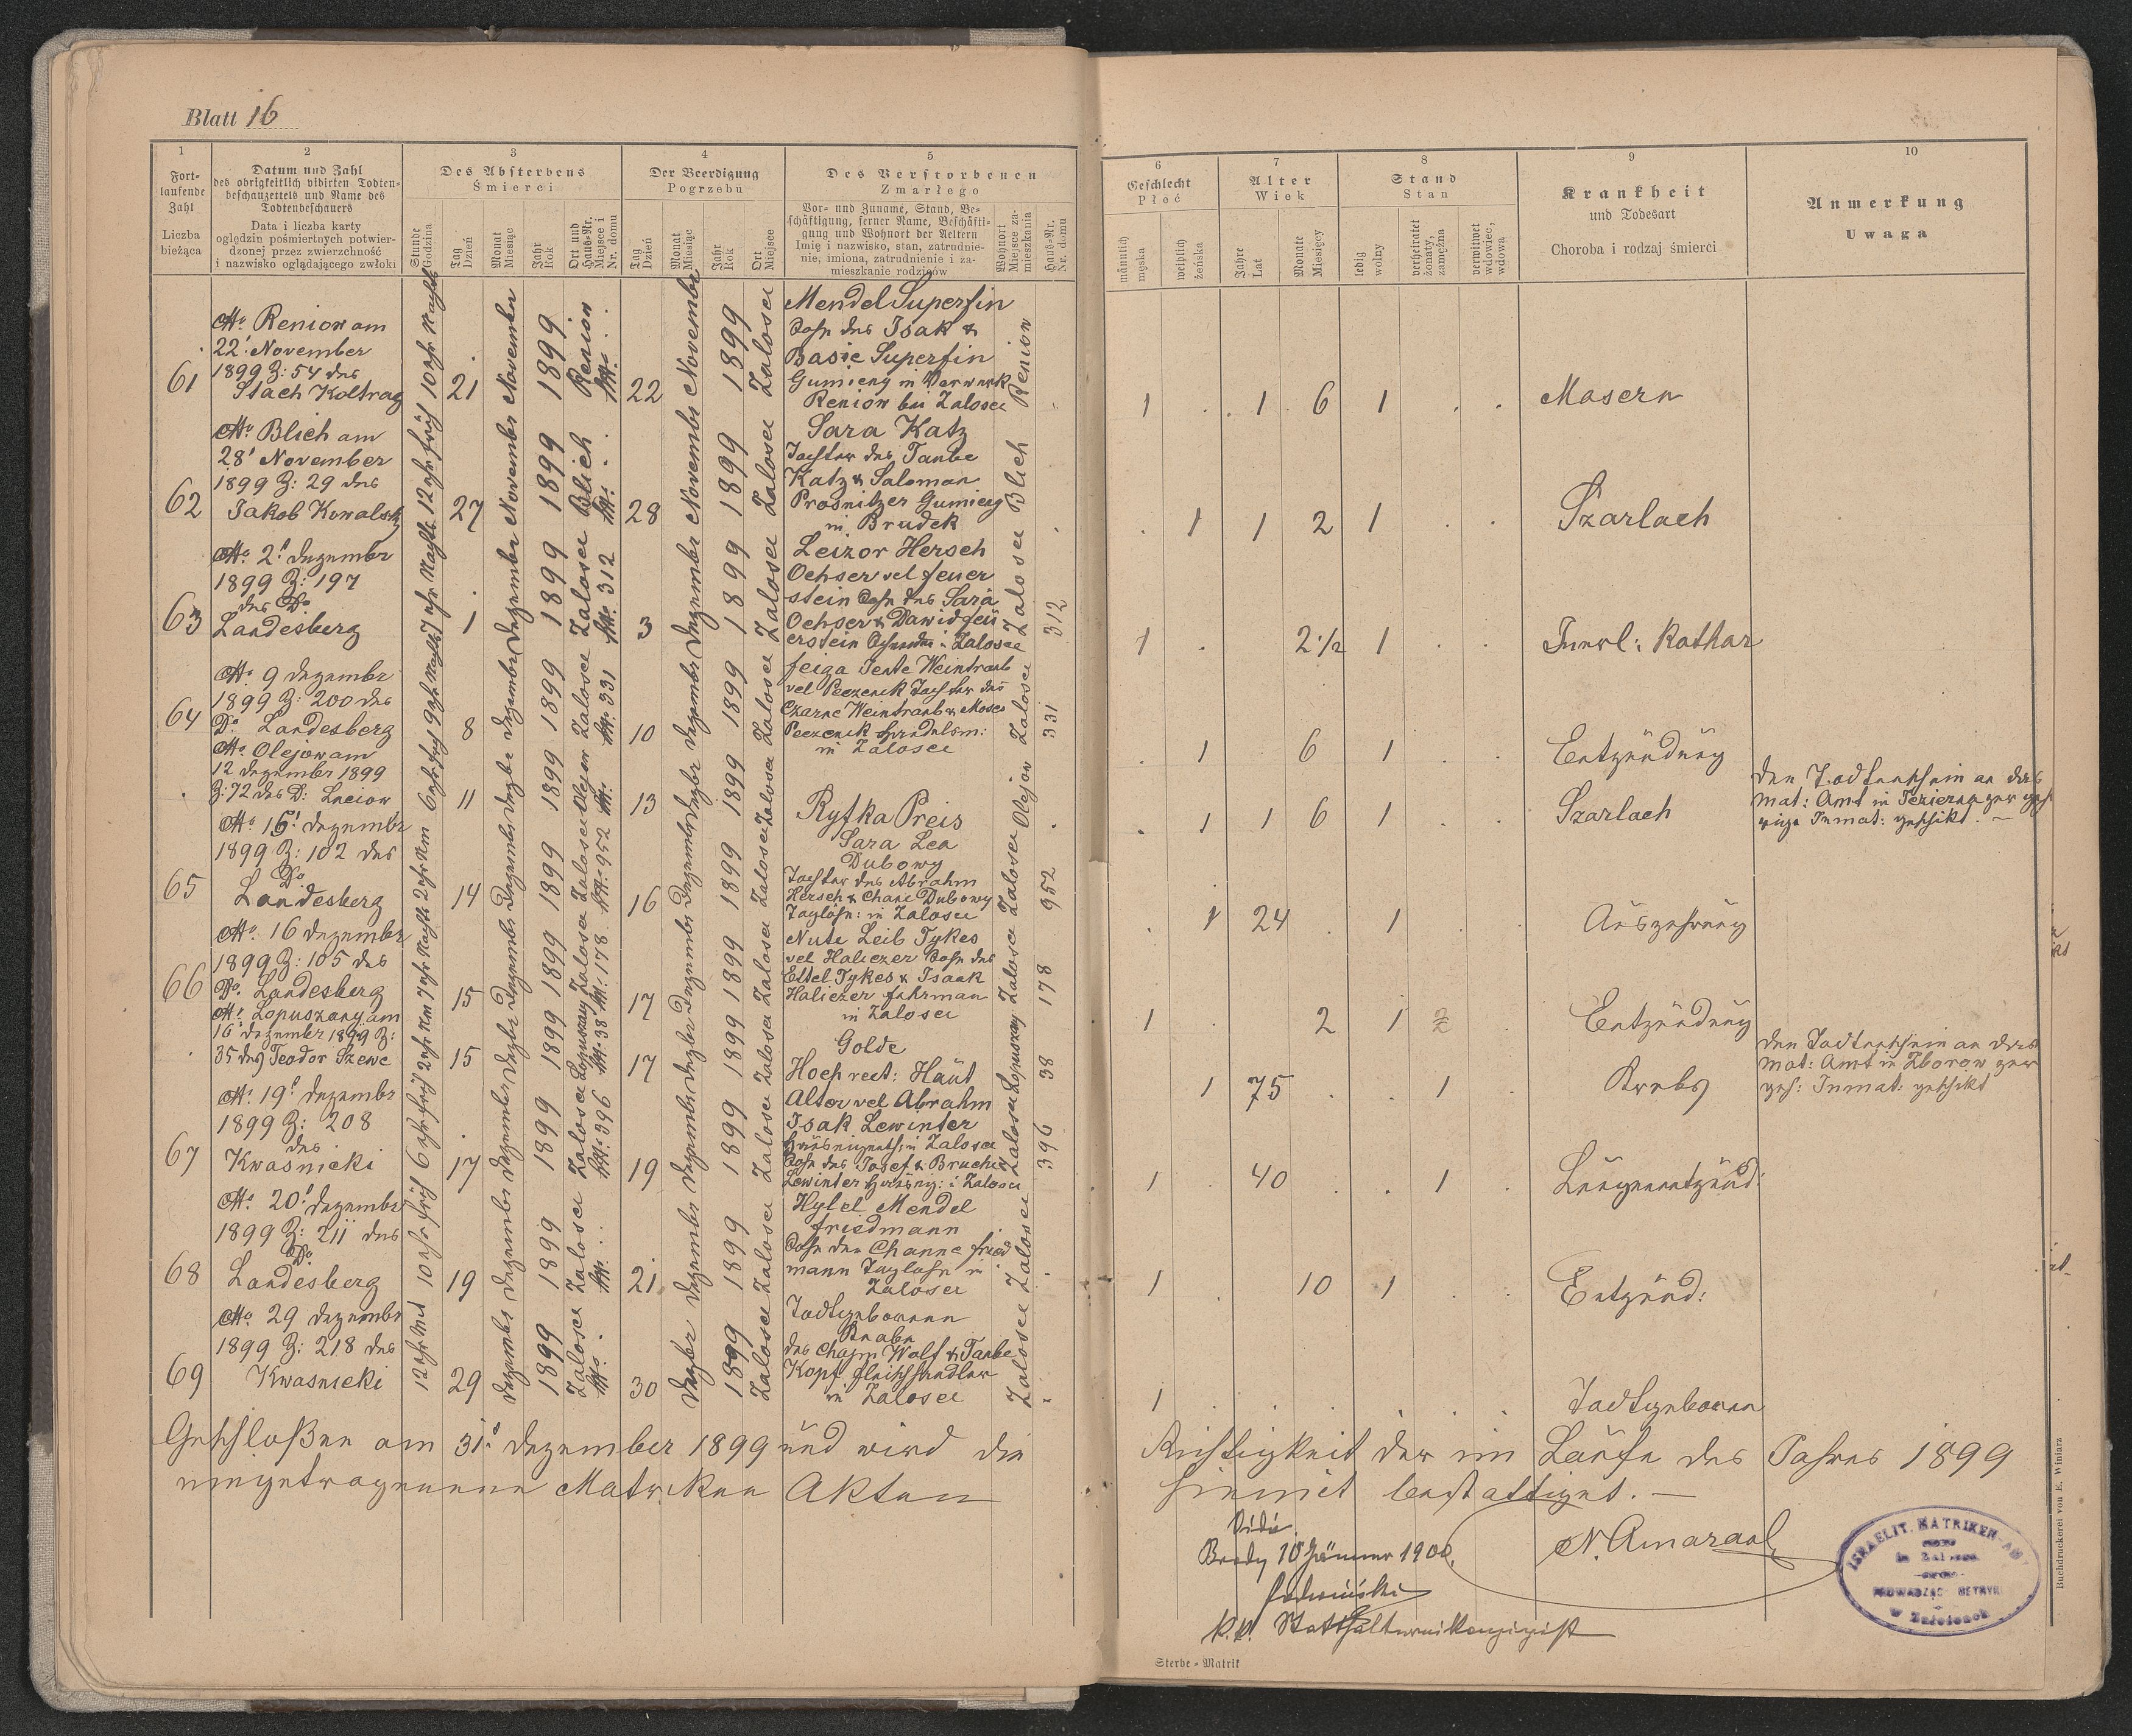 Blatt 16
1
Fort-
laufende
Zahl
Liczba
bieżąca
2
Datum und Zahl
des obrigkeitlich vidirten Todten-
beschauzettels und Name des
Todtenbeschauers
Data i liczba karty
oględzin pośmiertnych potwier-
dzonej przez zwierzchność
i nazwisko oglądającego zwłoki
3
Des Absterbens
Śmierci
Stunde
Godzina
Tag
Dzień
Monat
Miesiąc
Jahr
Rok
Ort und
Haus-Nr.
Miejsce i
Nr. domu
4
Der Beerdigung
Pogrzebu
Tag
Dzień
Monat
Miesiąc
Jahr
Rok
Ort
Miejsce
5
Des Verstorbenen
Zmarłego
Vor- und Zuname, Stand, Be-
schäftigung, ferner Name, Beschäfti-
gung und Wohnort der Aeltern
Imię i nazwisko, stan, zatrudnie-
nie, imiona, zatrudnienie i za-
mieszkanie rodziców
Wohnort
Miejsce za-
mieszkania
Haus-Nr.
Nr. domu
6
Geschlecht
Płeć
männlich
męska
weiblich
żeńska
7
Alter
Wiek
Jahre
Lat
Monate
Miesięcy
8
Stand
Stan
ledig
wolny
verheiratet
żonaty,
zamężna
verwitwet
wdowiec,
wdowa
9
Krankheit
und Todesart
Choroba i rodzaj śmierci
10
Anmerkung
Uwaga
61
Atto Reniow am
22' November
1899 Z: 54 des
Stach Koltrag
10 Uhr Nachts
21
November
1899
Reniow
22
November
1899
Zalosce
Mendel Superfin
Sohn des Isak &
Basie Superfin
Gumieng in Verwerk
Reniow bei Zalosce
Reniow
1 . . 1 6 1 . .
Masern
62
Atto Blich am
28' November
1899 Z: 29 des
Jakob Kowalsky
12 Uhr früh
27
November
1899
Blich
28
November
1899
Zalosce
Sara Katz
Tochter des Taube
Katz & Saloman
Prosnitzer Gumieng
in Brudek
Blich
. 1 1 2 1 . .
Szarlach
63
Atto 2' Dezember
1899 Z: 197
des Dr
Landesberg
7 Uhr Nachts
1
Dezember
1899
Zalosce
No: 312
3
Dezember
1899
Zalosce
Leizor Hersch
Ochser vel Feuer
stein Sohn des Sara
Ochser & Dawid Feu
erstein in Zalosce
Zalosce
312
1 . 2 1/2 1 . .
Kathar
64
Atto 9 Dezember
1899 Z: 200 des
Dr Landesberg
9 Uhr Nachts
8
Dezember
1899
Zalosce
No: 331
10
Dezember
1899
Zalosce
Feiga Jente Weintraub
vel Peczenik Tochter des
Czarne Weintraub & Moses
Peczenik Handelsm:
in Zalosce
Zalosce
331
. 1 6 1 . .
Entzündung
Atto Olejow am
12 Dezember 1899
Z: 72 des D: Luciow
6 Uhr früh
11
Dezbr
1899
Olejow
13
Dezbr
1899
Zalosce
Ryfka Preis
Olejow
. 1 1 6 1 . .
Szarlach
Den Todtenschein an das
Mat: Amt in Jezierna zur geh
rige Inmat: geschikt. —
65
Atto 15' Dezember
1899 Z: 102 des
Dr
Landesberg
2 Uhr Nm
14
Dezember
1899
Zalosce
No: 952
16
Dezember
1899
Zalosce
Sara Lea
Dubowy
Tochter des Abrahm
Hersch & Chane Dubowy
Taglöhn: in Zalosce
Zalosce
952
. 1 24 . 1 . .
Auszehrung
66
Atto 16 Dezember
1899 Z: 105 des
Dr. Landesberg
7 Uhr Nachts
15
Dezember
1899
Zalosce
No: 178
17
Dezember
1899
Zalosce
Nute Leib Tykes
vel Haliczer Sohn des
Ettel Tykes & Isaak
Haliczer Fuhrman
in Zalosce
Zalosce
178
1 . 2 1 2 .
Entzündung
Atto Lopuszany am
16 Dezember 1899 Z:
35 des Teodor Szewc
2 Uhr Nm
15
Dezbr
1899
Lopuszany
No: 38
17
Dezbr
1899
Zalosce
Golde
Hoch rect: Haut
Lopuszany
38
. 1 75 . . 1 .
Krebs
Den Todtenschein an das
Mat: Amt in Zborow zur
geh: Inmat: geschikt
67
Atto 19' Dezember
1899 Z: 208
des
Kwasnicki
6 Uhr früh
17
Dezember
1899
Zalosce
No: 396
19
Dezember
1899
Zalosce
Alter vel Abrahm
Isak Lewinter
Hauseigenth: in Zalosce
Sohn des Josef & Bruche
Lewinter Hauseig: i Zalosce
Zalosce
396
1 . 40 . . 1 .
Lungenentzünd:
68
Atto 20' Dezember
1899 Z: 211 des
Dr
Landesberg
10 Uhr früh
19
Dezember
1899
Zalosce
21
Dezember
1899
Zalosce
Hylel Mendel
Friedmann
Sohn der Channe Fried
mann Taglöhn in
Zalosce
Zalosce
1 . 10 1 . .
Entzünd:
69
Atto 29 Dezember
1899 Z: 218 des
Kwasnicki
12 Uhr Mit
29
Dezember
1899
Zalosce
30
Dezbr
1899
Zalosce
Todtgeborenen
Knabe
des Chaim Wolf & Taube
Kopf Fleischhandler
in Zalosce
Zalosce
1 . . . . . .
Todtgeboren
Geschloßen am 31' Dezember 1899 und wird die Richtigkeit der im Laufe des Jahres 1899
eingetragenenen Matriken Akten hiemit bestattiget. —
Vidi
Brody 10 Jänner 1900.
K.K. Statthaltereikonzipist
N. Amaraal
ISRAELIT. MATRIKEN-AMT
in Zalosce
PROWADZĄC METRYKI
w Załoścach
Sterbe-Matrik
Buchdruckerei von E. Winiarz